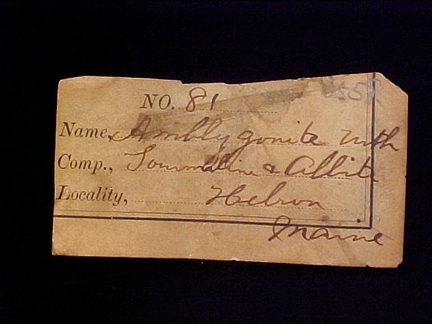 NO. 81
Name, Amblygonite with
Comp., Tourmaline & Albite
Locality, Hebron
Maine